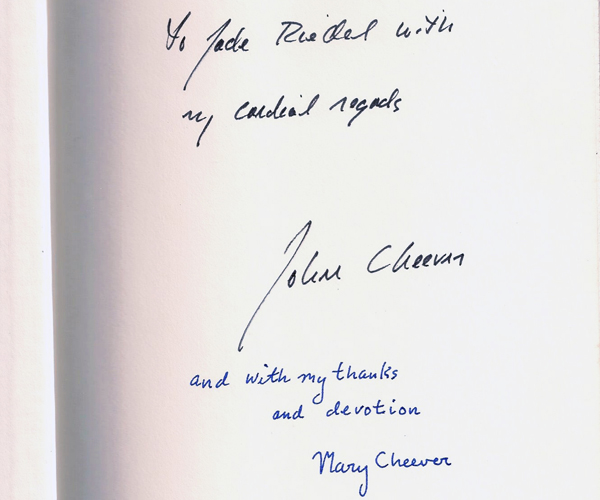 To Jade Riedel with
my cordial regads
John Cheever
and with my thanks
and devotion
Mary Cheever